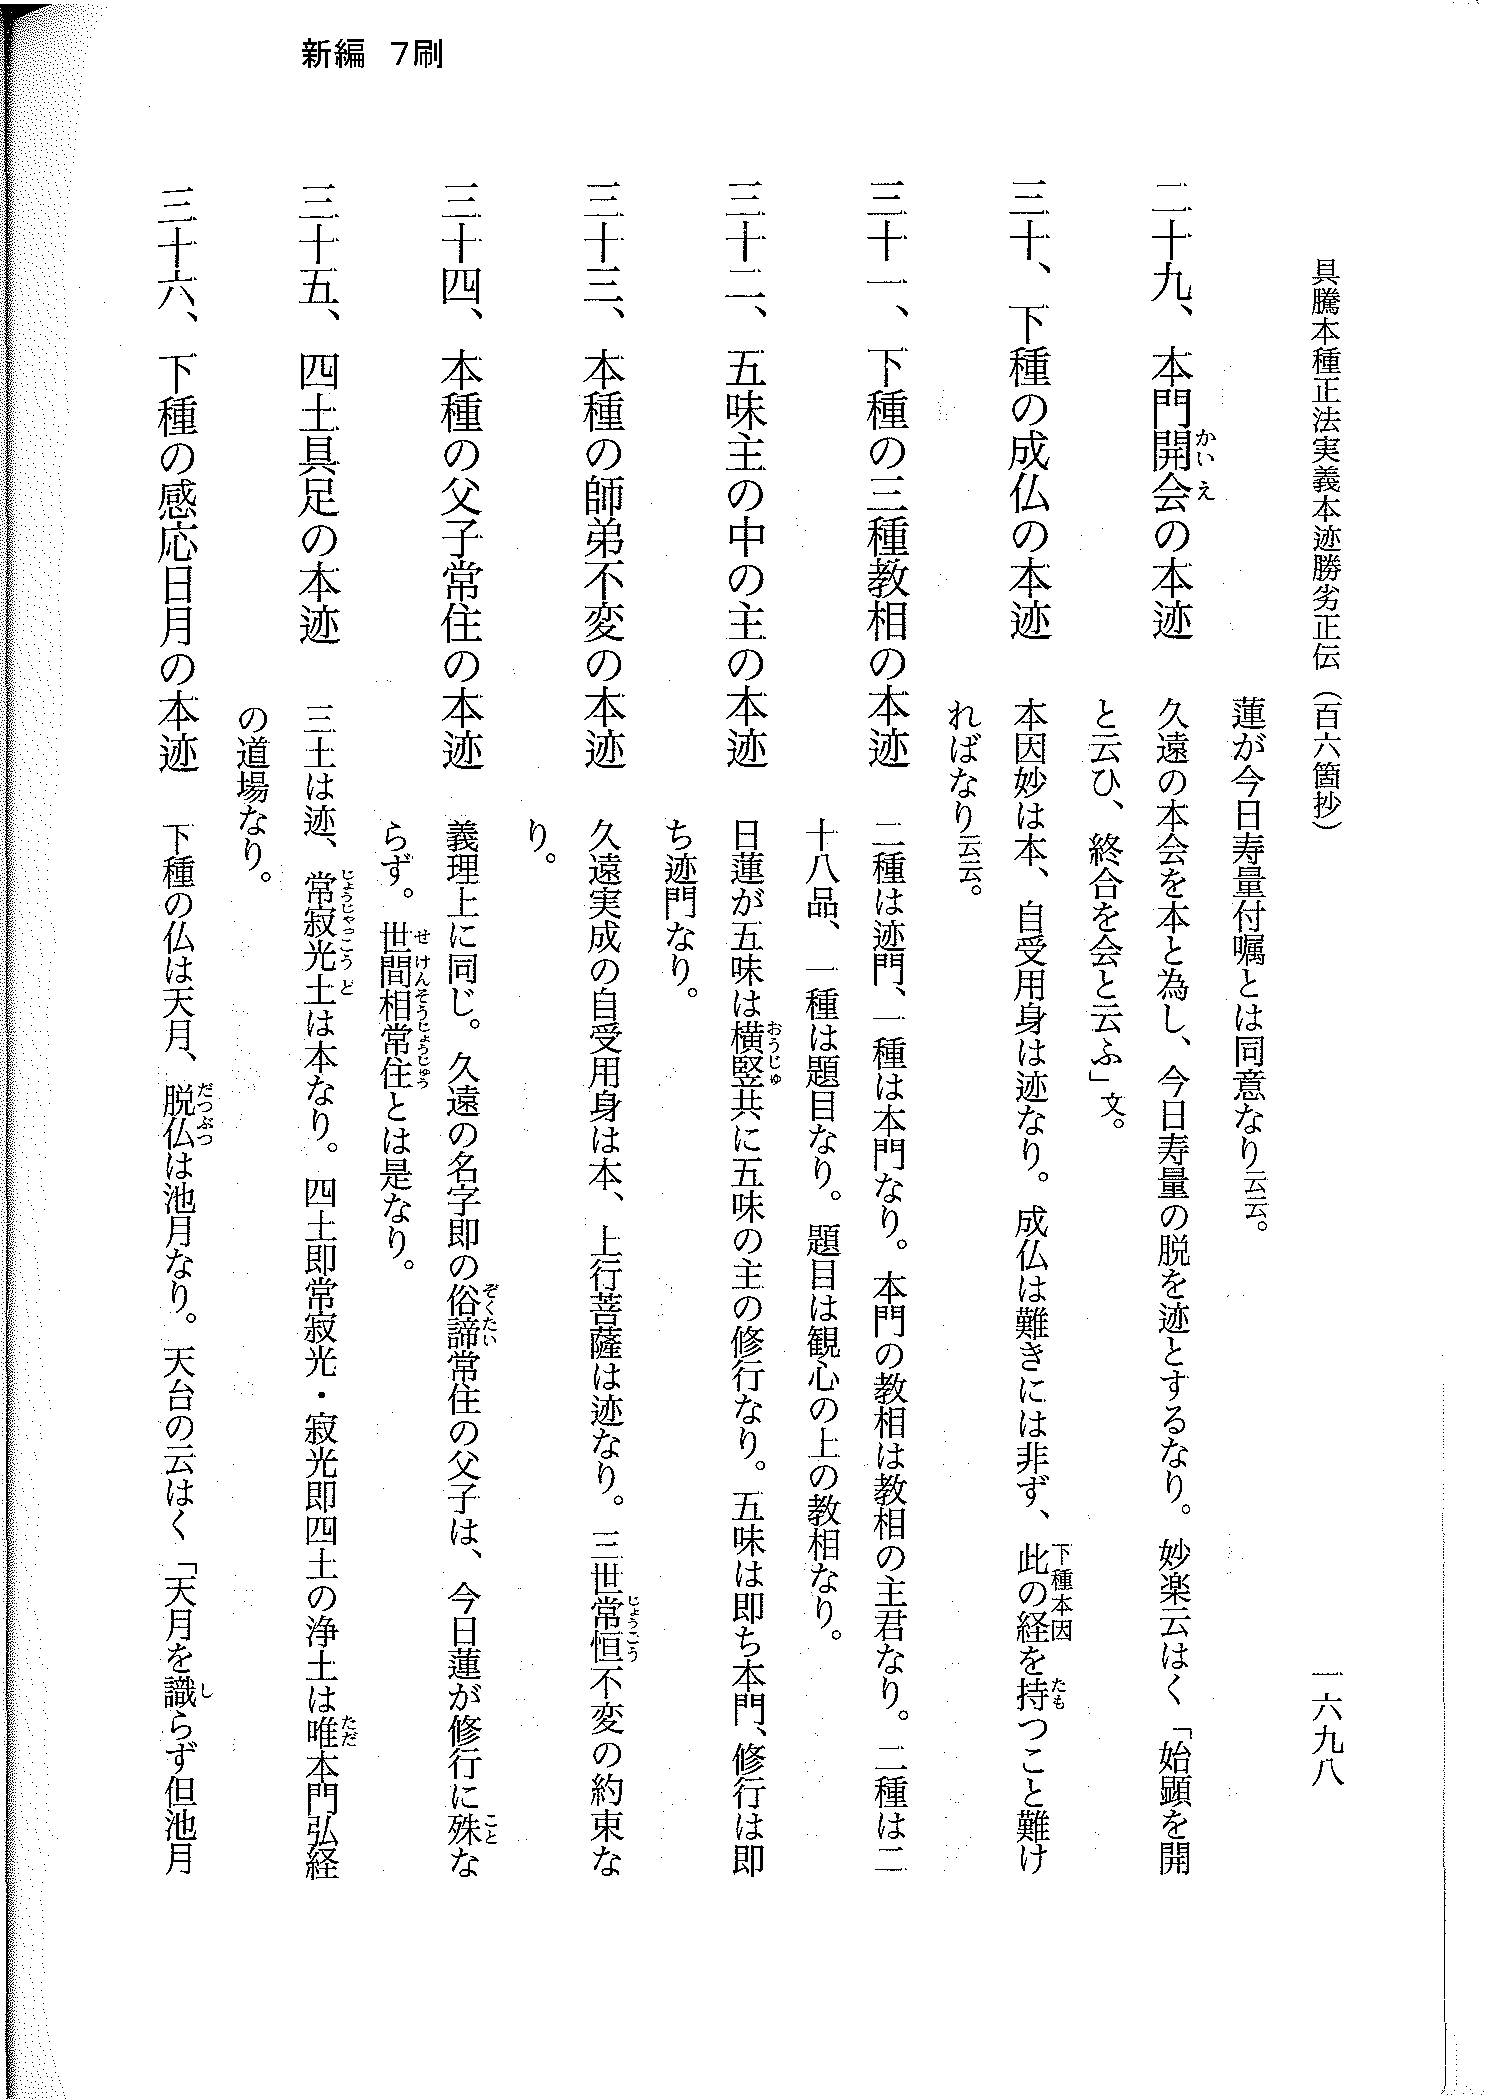 新編 7刷
具騰本種正法実義本迹勝劣正伝(百六箇抄) 一六九八
蓮が今日寿量付嘱とは同意なり云云。
二十九、本門開会の本迹 久遠の本会を本と為し、今日寿量の脱を迹とするなり。妙楽云はく「始顕を開
と云ひ、終合を会と云ふ」文。
三十、下種の成仏の本迹 本因妙は本、自受用身は迹なり。成仏は難きには非ず、此の経を持つこと難け
ればなり云云。
三十一、下種の三種教相の本迹 二種は迹門、一種は本門なり。本門の教相は教相の主君なり。二種は二
十八品、一種は題目なり。題目は観心の上の教相なり。
三十二、五味主の中の主の本迹 日蓮が五味は横竪共に五味の主の修行なり。五味は即ち本門、修行は即
ち迹門なり。
三十三、本種の師弟不変の本迹 久遠実成の自受用身は本、上行菩薩は迹なり。三世常恒不変の約束な
り。
三十四、本種の父子常住の本迹 義理上に同じ。久遠の名字即の俗諦常住の父子は、今日蓮が修行に殊な
らず。世間相常住とは是なり。
三十五、四土具足の本迹 三土は迹、常寂光土は本なり。四土即常寂光・寂光即四土の浄土は唯本門弘経
の道場なり。
三十六、下種の感応日月の本迹 下種の仏は天月、脱仏は池月なり。天台の云はく「天月を識らず但池月
かいえ
下種本因
たも
おうじゅ
じょうごう
ぞくたい
こと
せけんそうじょうじゅう
じょうじゃっこうど
ただ
だつぶつ
し